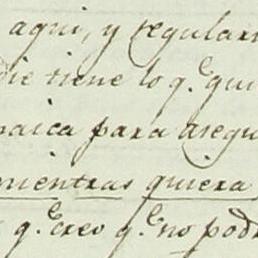 aqui, y regular
die tiene lo q.e qui
maica para asegu
mientras quiera
q.e creo q.e no podr